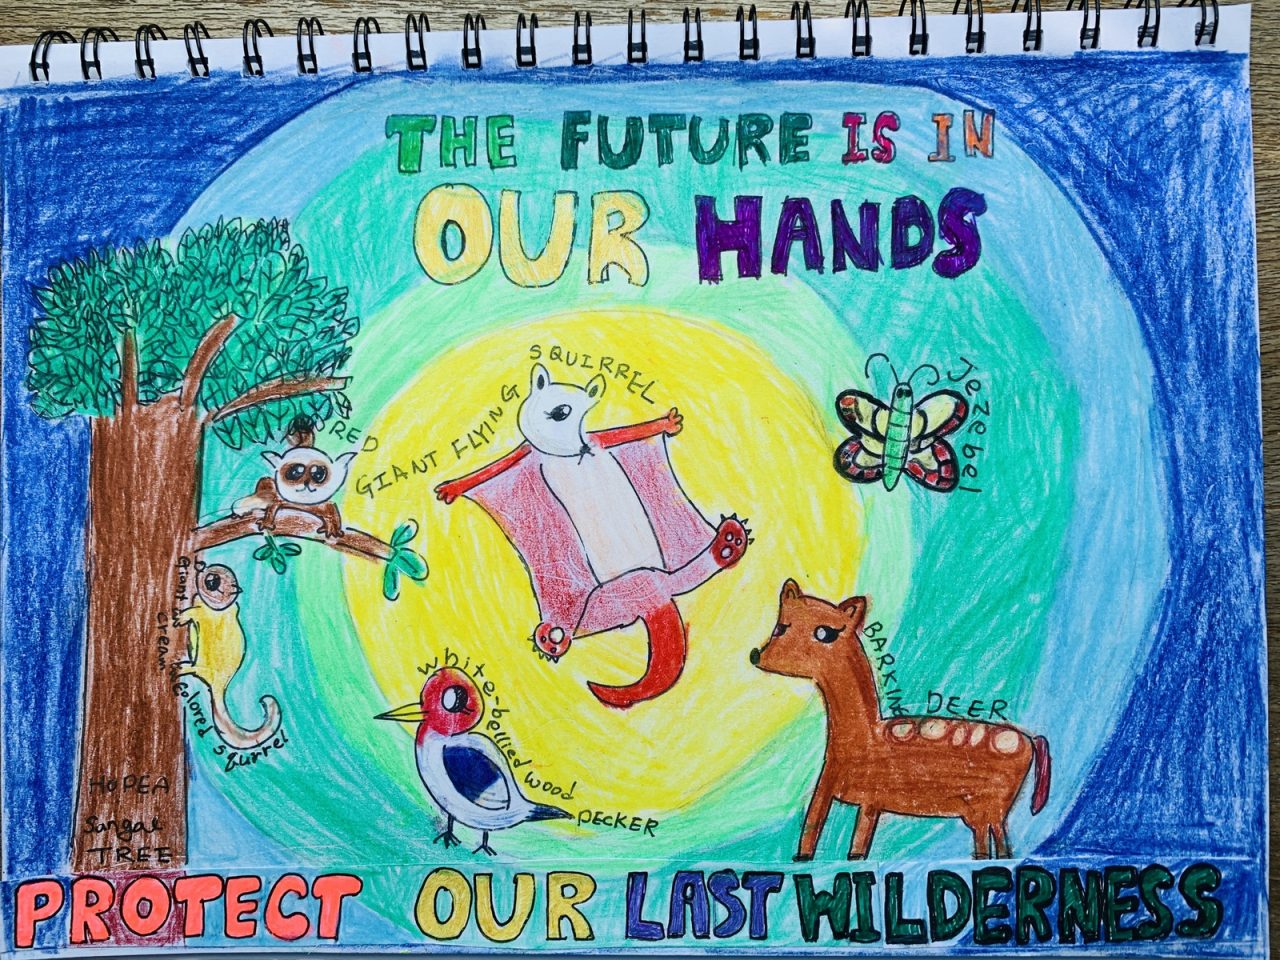 THE FUTURE IS IN
OUR HANDS
RED GIANT FLYING SQUIRREL
Jezebel
Giant
cream colored squirrel
white-bellied wood PECKER
BARKING DEER
HOPEA
Sangal
TREE
PROTECT OUR LAST WILDERNESS